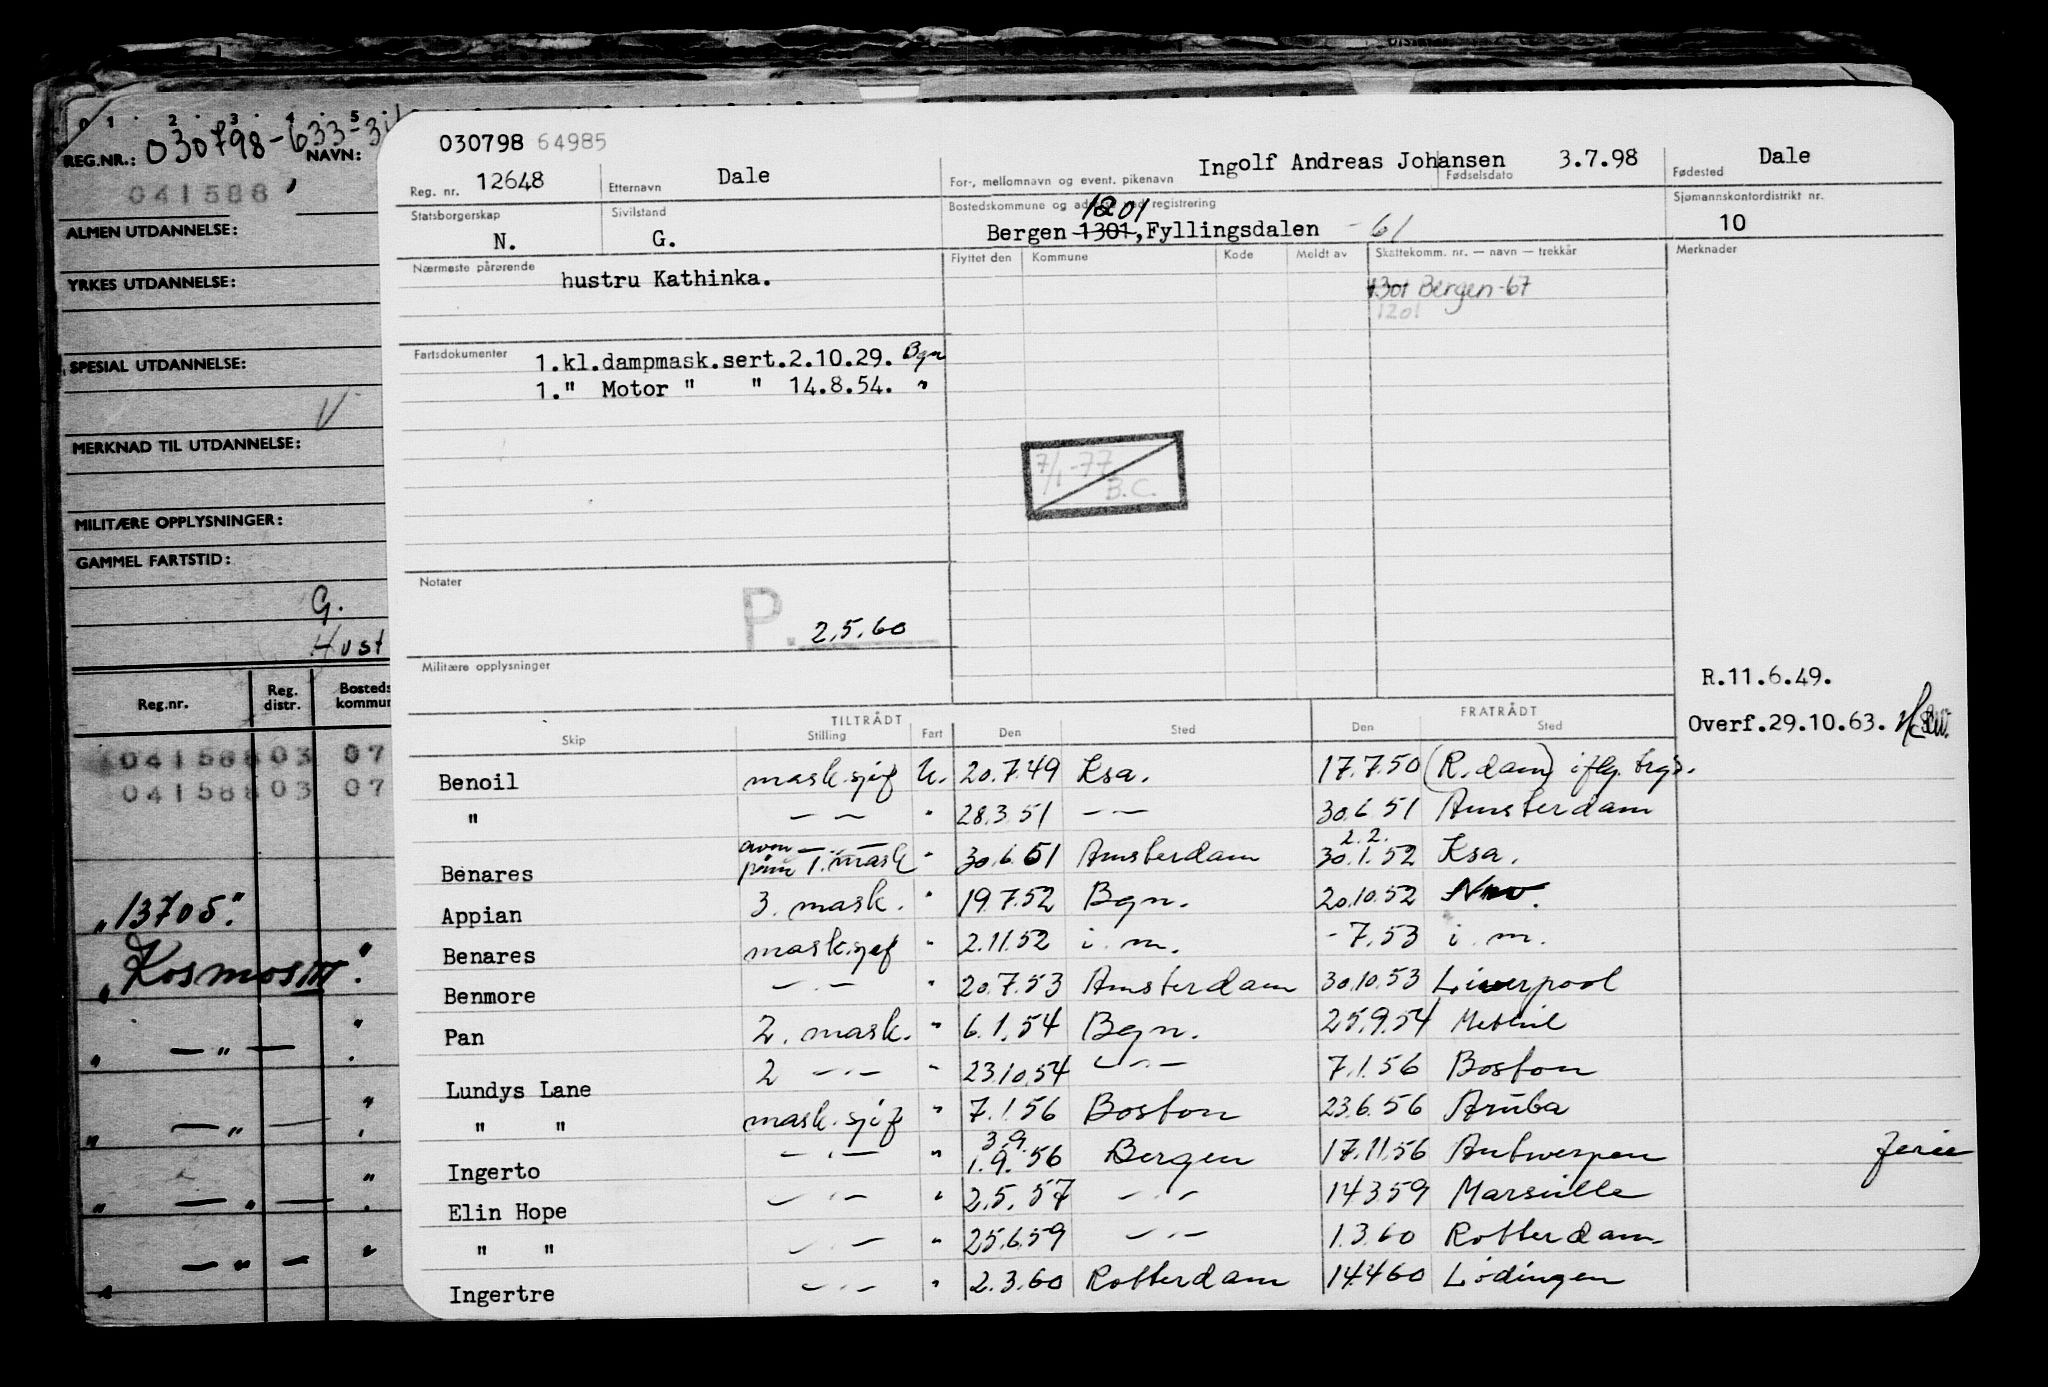 0 1 2 3 4 5
REG.NR.: 030798-633-31 NAVN:
041588
ALMEN UTDANNELSE:
YRKES UTDANNELSE:
SPESIAL UTDANNELSE:
V
MERKNAD TIL UTDANNELSE:
MILITÆRE OPPLYSNINGER:
GAMMEL FARTSTID:
G.
Hust
Reg.nr. Reg. distr. Bosteds kommun
04158803 07
04158803 07
"13705".
"Kosmos III".
" — " — "
" — " — "
" — " — "
" — " — "
030798 64985
Reg. nr. 12648 Etternavn Dale For-, mellomnavn og event. pikenavn Ingolf Andreas Johansen Fødselsdato 3.7.98 Fødested Dale
Statsborgerskap N. Sivilstand G. Bostedskommune og adresse ved registrering 1201 Bergen 1301,Fyllingsdalen -61 Sjømannskontordistrikt nr. 10
Nærmeste pårørende hustru Kathinka.
Flyttet den Kommune Kode Meldt av Skattekomm. nr. — navn — trekkår Merknader
1301 Bergen-67
1201
Fartsdokumenter 1.kl.dampmask.sert.2.10.29. Bgn
1." Motor " " 14.8.54. "
7/1-77
B.C.
Notater
P. 2.5.60
Militære opplysninger
R.11.6.49.
Overf.29.10.63.
TILTRÅDT FRATRÅDT
Skip Stilling Fart Den Sted Den Sted
Benoil mask.sjef U. 20.7.49 Ksa. 17.7.50 (R.dam) iflg. brgs.
" — — " 28.3.51 — — 30.6.51 Amsterdam
Benares — . — 1. mask " 30.6.51 Amsterdam 2.2. 30.1.52 Ksa.
Appian 3. mask. " 19.7.52 Bgn. 20.10.52
Benares mask.sjef " 2.11.52 i. m. - 7.53 i. m.
Benmore — . — " 20.7.53 Amsterdam 30.10.53 Liverpool
Pan 2. mask. " 6.1.54 Bgn. 25.9.54 Methil
Lundys Lane 2 — . — " 23.10.54 — . — 7.1.56 Boston
" " mask.sjef " 7.1.56 Boston 23.6.56 Aruba
Ingerto — . — " 3.9. 1.9.56 Bergen 17.11.56 Antwerpen Ferie
Elin Hope — . — " 2.5.57 — . — 14.3.59 Marseille
" " — . — " 25.6.59 — . — 1.3.60 Rotterdam
Ingertre — . — " 2.3.60 Rotterdam 14.4.60 Lødingen